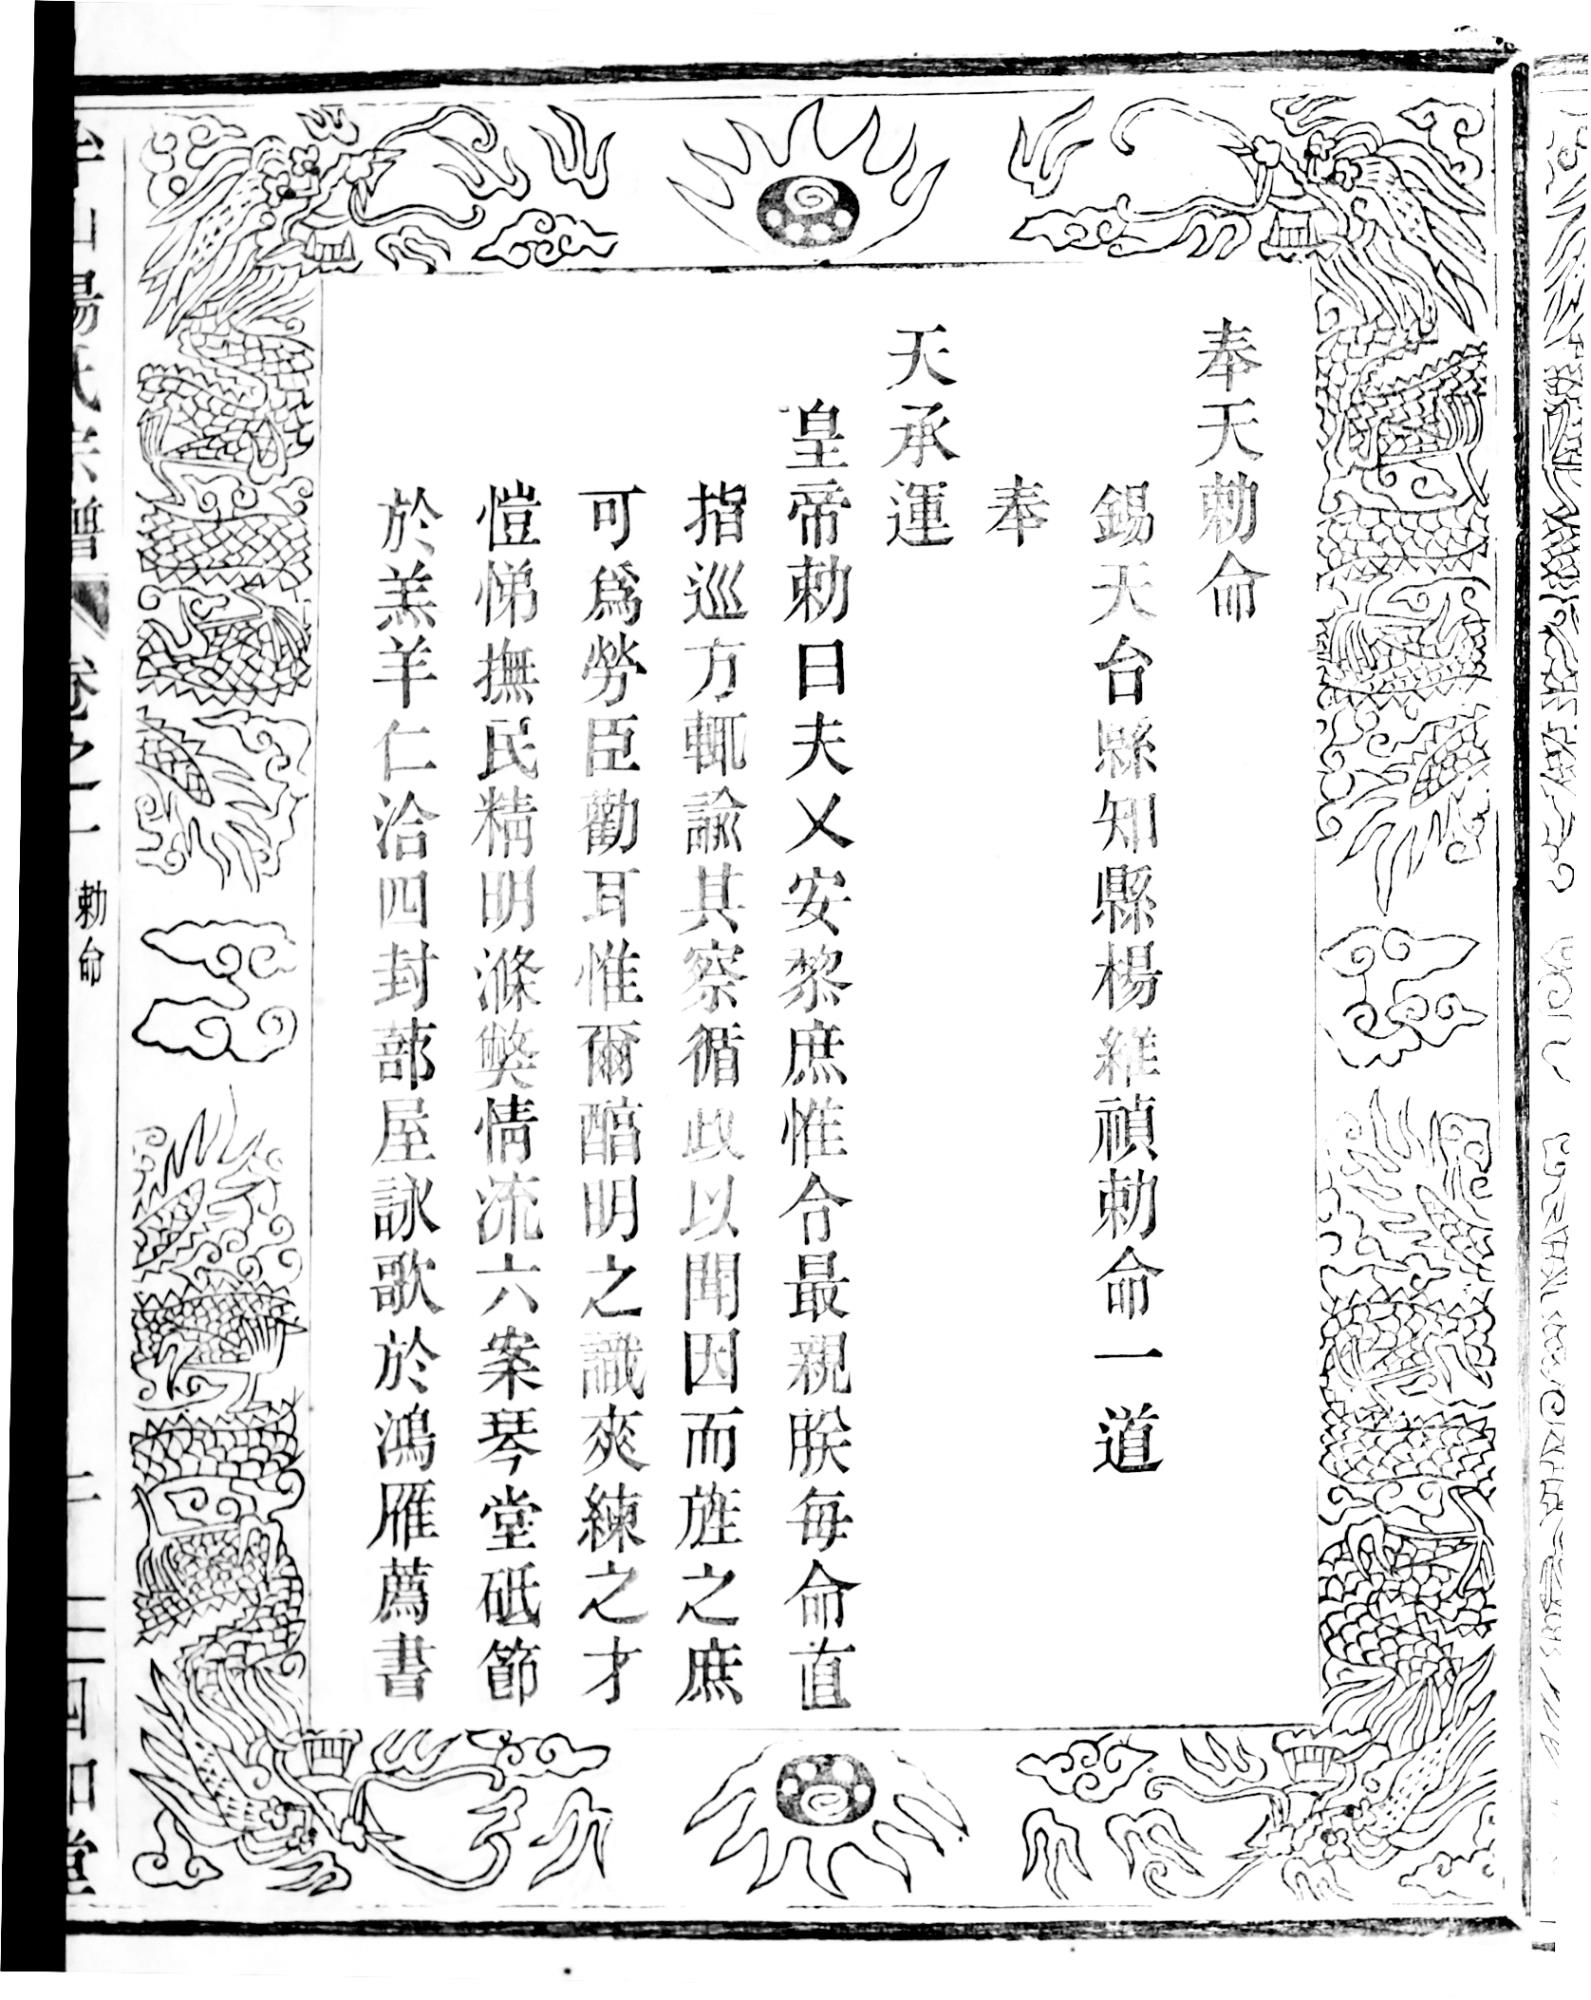 奉天勅命
錫天台縣知縣楊維禎勅命一道
奉
天承運
皇帝勅曰夫乂安黎庶惟令最親朕每命直
指巡方輒諭其察循政以聞因而旌之庶
可爲勞臣勸耳惟爾醅明之識爽練之才
愷悌撫民精明滌獘情流六案琴堂砥節
於羔羊仁洽四封蔀屋詠歌於鴻雁薦書
楊氏宗譜 卷之一 勅命
四知堂